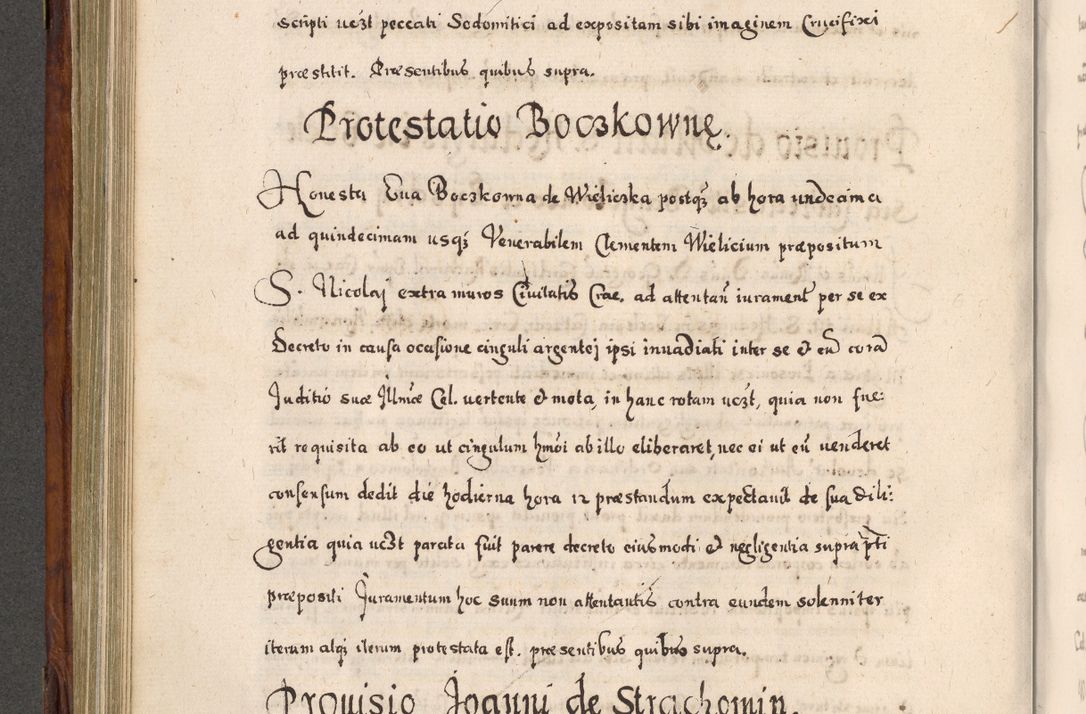 scripti uczt peccati Sodomitici ad expositam sibi imaginem Crucifixi
præstitit. Præsentibus quibus supra.
Protestatio Boczkownę.
Honesta Eua Boczkowna de Wieliczka postqz ab hora undecima
ad quindecimam usqz Venerabilem Clementem Wielicium præpositum
S. Nicolaj extra muros Ciuitatis Crac. ad attentan̄ iurament̄ per se ex
Decreto in causa ocasione cinguli argentej ipsi inuadiati inter se et eū corā
Juditio suæ Jllmæ Cel. vertente et mota, in hanc rotam uczt, quia non fue:
rit requisita ab eo ut cingulum hmōi ab illo eliberaret, nec ei ut eū venderet
consensum dedit die hodierna hora 12 præstandum expectauit de sua dili:
gentia quia uczt parata fuit parere decreto eiusmodi et negligentia supra p̄ti
præpositi Juramentum hoc suum non attentantis contra eundem solenniter
iterum atqz iterum protestata est. præsentibus quibus supra.
Prouisio Joanni de Strachomin.